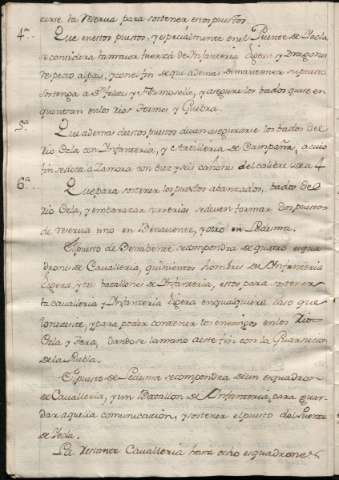 cerse la Reserva para sostener estos puestos.
4.ª Que en estos puestos, y especialmente en el Puente de Tecla
se considera la mayor fuerza de Infanteria Ligera y Dragones
respecto al pais, y con el fin de que ademas de mantener su puesto
sostenga a S.n Felices y Fermoselle, y asegure los bados que se en
quentran entre los rios Tormes y Guebra.
5.ª Que ademas de estos puestos deven asegurarse los bados del
rio Esla con Infanteria, y Artilleria de Campaña, a cuio
fin se dirije a Zamora con diez y seis cañones del calibre de a 4
6.ª Que para sostener los puestos abanzados, bados del
rio Esla, y embarazar sorpresas se deven formar dos puestos
de reserva uno en Benavente, y otro en Ledesma.
El puesto de Benavente se compondra de quatro esqua
drones de Cavalleria, quinientos hombres de Infanteria
Ligera y tres batallones de Infanteria, estos para sostener
la cavalleria y Infanteria Ligera en qualquiera caso que
lo necesite, y para poder contener los enemigos entre los rios
Esla y Tera, dandose la mano a este fin con la Guarnicion
de la Puebla.
El puesto de Ledesma se compondra de un esquadron
de Cavalleria, y un Batallon de Infanteria, para guar
dar aquella comunicacion, y sostener el puesto del Puente
de Tecla.
La Cavalleria hará ocho esquadrones